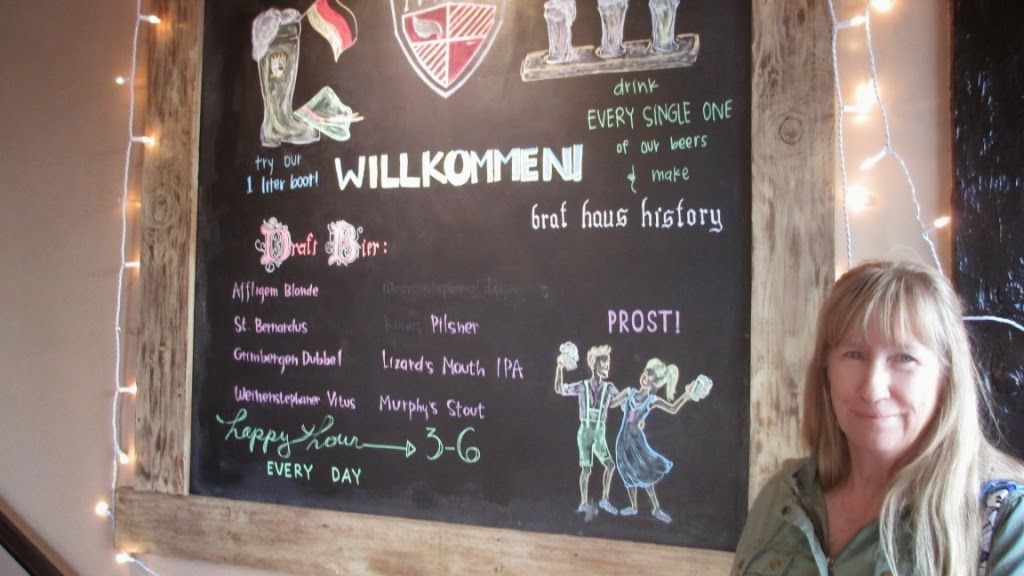 try our
1 liter boot!
WILLKOMMEN!
drink
EVERY SINGLE ONE
of our beers
& make
brat haus history
Draft Bier:
Affligem Blonde
St. Bernardus
Grimbergen Dubbel
Weihenstephaner Vitus
Pilsner
Lizard's Mouth IPA
Murphy's Stout
happy hour 3-6
EVERY DAY
PROST!